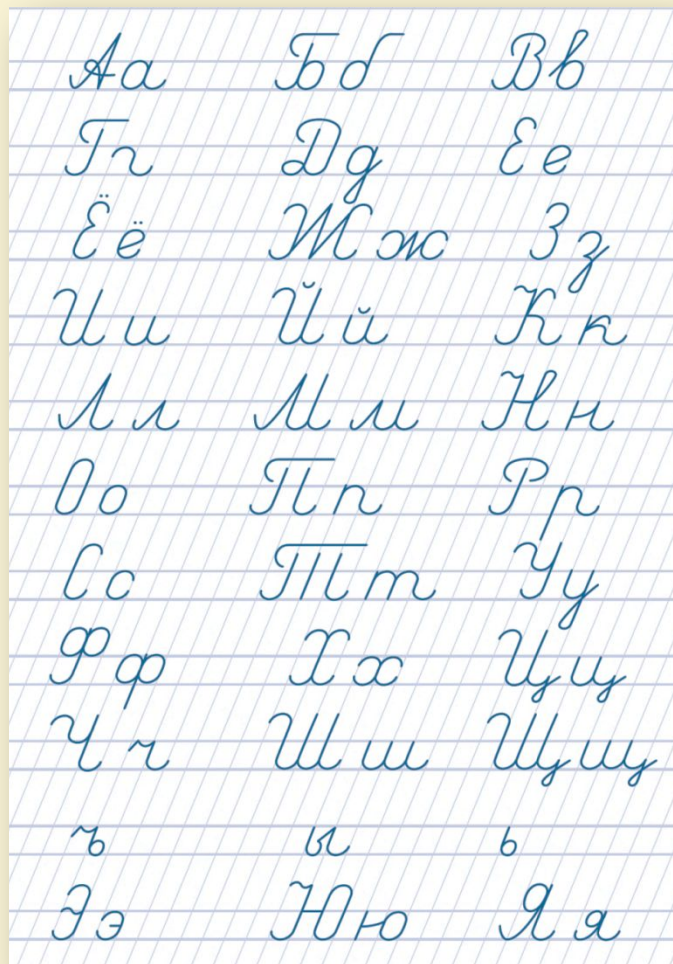 Аа Бб Вв
Гг Дд Ее
Ёё Жж Зз
Ии Йй Кк
Лл Мм Нн
Оо Пп Рр
Сс Тт Уу
Фф Хх Цц
Чч Шш Щщ
ъ ы ь
Ээ Юю Яя